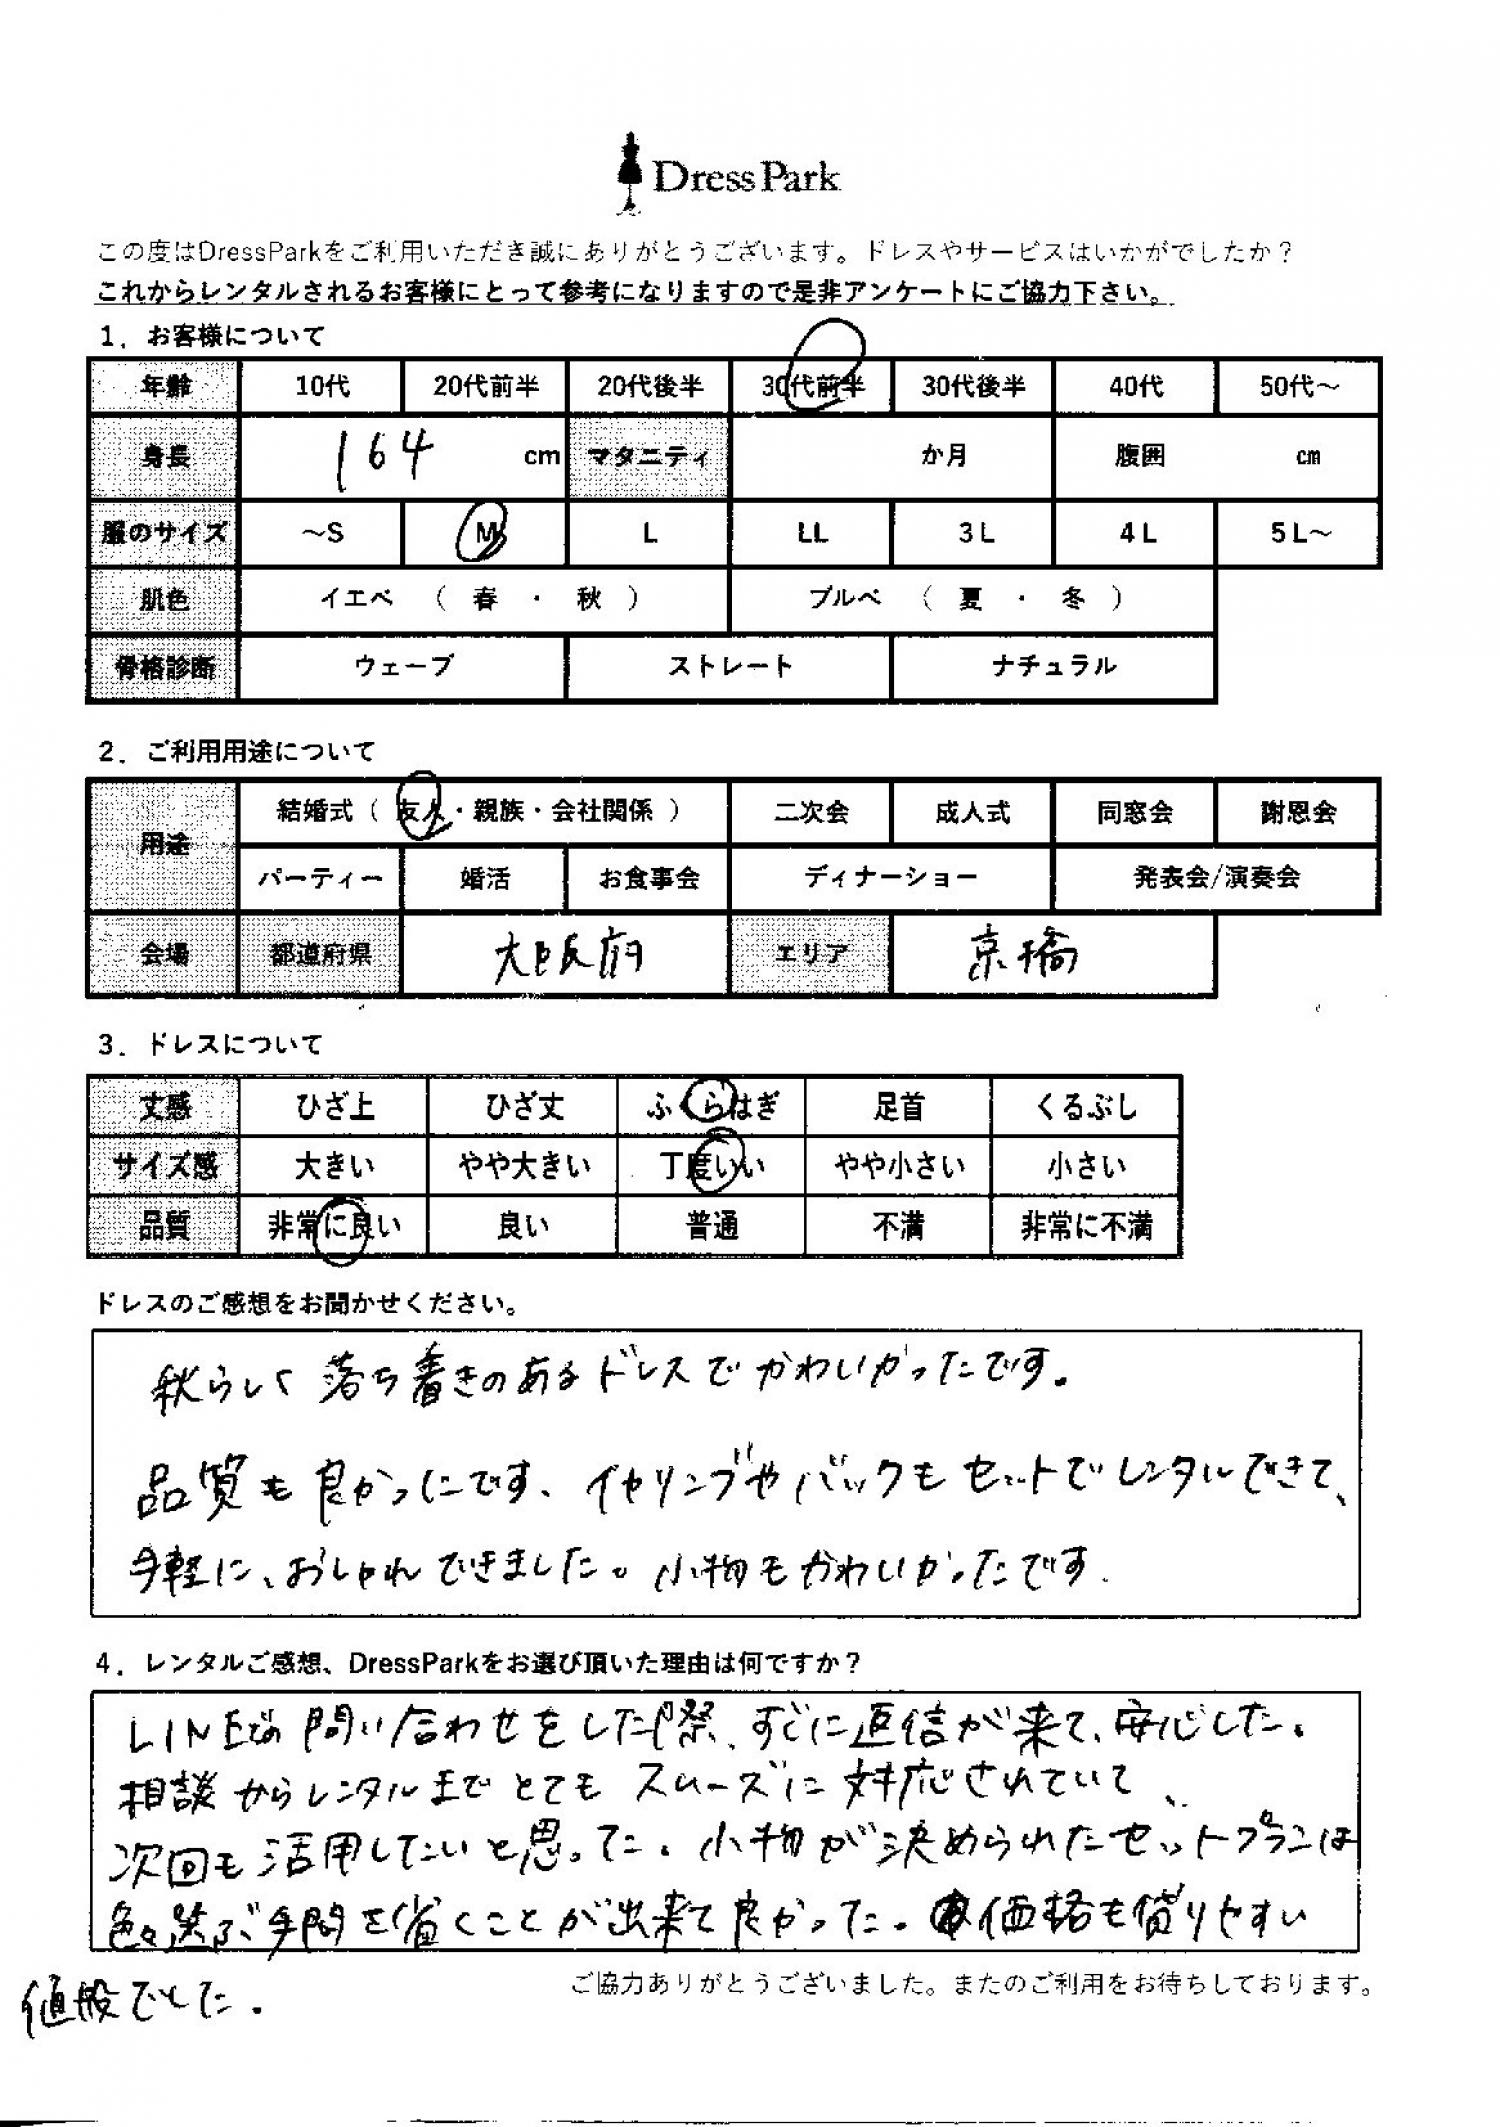 DressPark
この度はDressParkをご利用いただき誠にありがとうございます。ドレスやサービスはいかがでしたか？
これからレンタルされるお客様にとって参考になりますので是非アンケートにご協力下さい。
1．お客様について
年齢 10代 20代前半 20代後半 30代前半 30代後半 40代 50代～
身長 164 cm マタニティ か月 腹囲 cm
服のサイズ ～S M L LL 3L 4L 5L～
肌色 イエベ （ 春 ・ 秋 ） ブルベ （ 夏 ・ 冬 ）
骨格診断 ウェーブ ストレート ナチュラル
2．ご利用用途について
用途 結婚式（ 友人・親族・会社関係 ） 二次会 成人式 同窓会 謝恩会
パーティー 婚活 お食事会 ディナーショー 発表会/演奏会
会場 都道府県 大阪府 エリア 京橋
3．ドレスについて
丈感 ひざ上 ひざ丈 ふくらはぎ 足首 くるぶし
サイズ感 大きい やや大きい 丁度いい やや小さい 小さい
品質 非常に良い 良い 普通 不満 非常に不満
ドレスのご感想をお聞かせください。
秋らしく落ち着きのあるドレスでかわいかったです。
品質も良かったです、イヤリングやバックもセットでレンタルできて、
手軽に、おしゃれできました。小物もかわいかったです.
4．レンタルご感想、DressParkをお選び頂いた理由は何ですか？
LINEでの問い合わせをした際、すぐに返信が来て、安心した。
相談からレンタルまでとてもスムーズに対応されていて、
次回も活用したいと思った。小物が決められたセットプランは
色々選ぶ手間を省くことが出来て良かった。価格も借りやすい
値段でした.
ご協力ありがとうございました。またのご利用をお待ちしております。